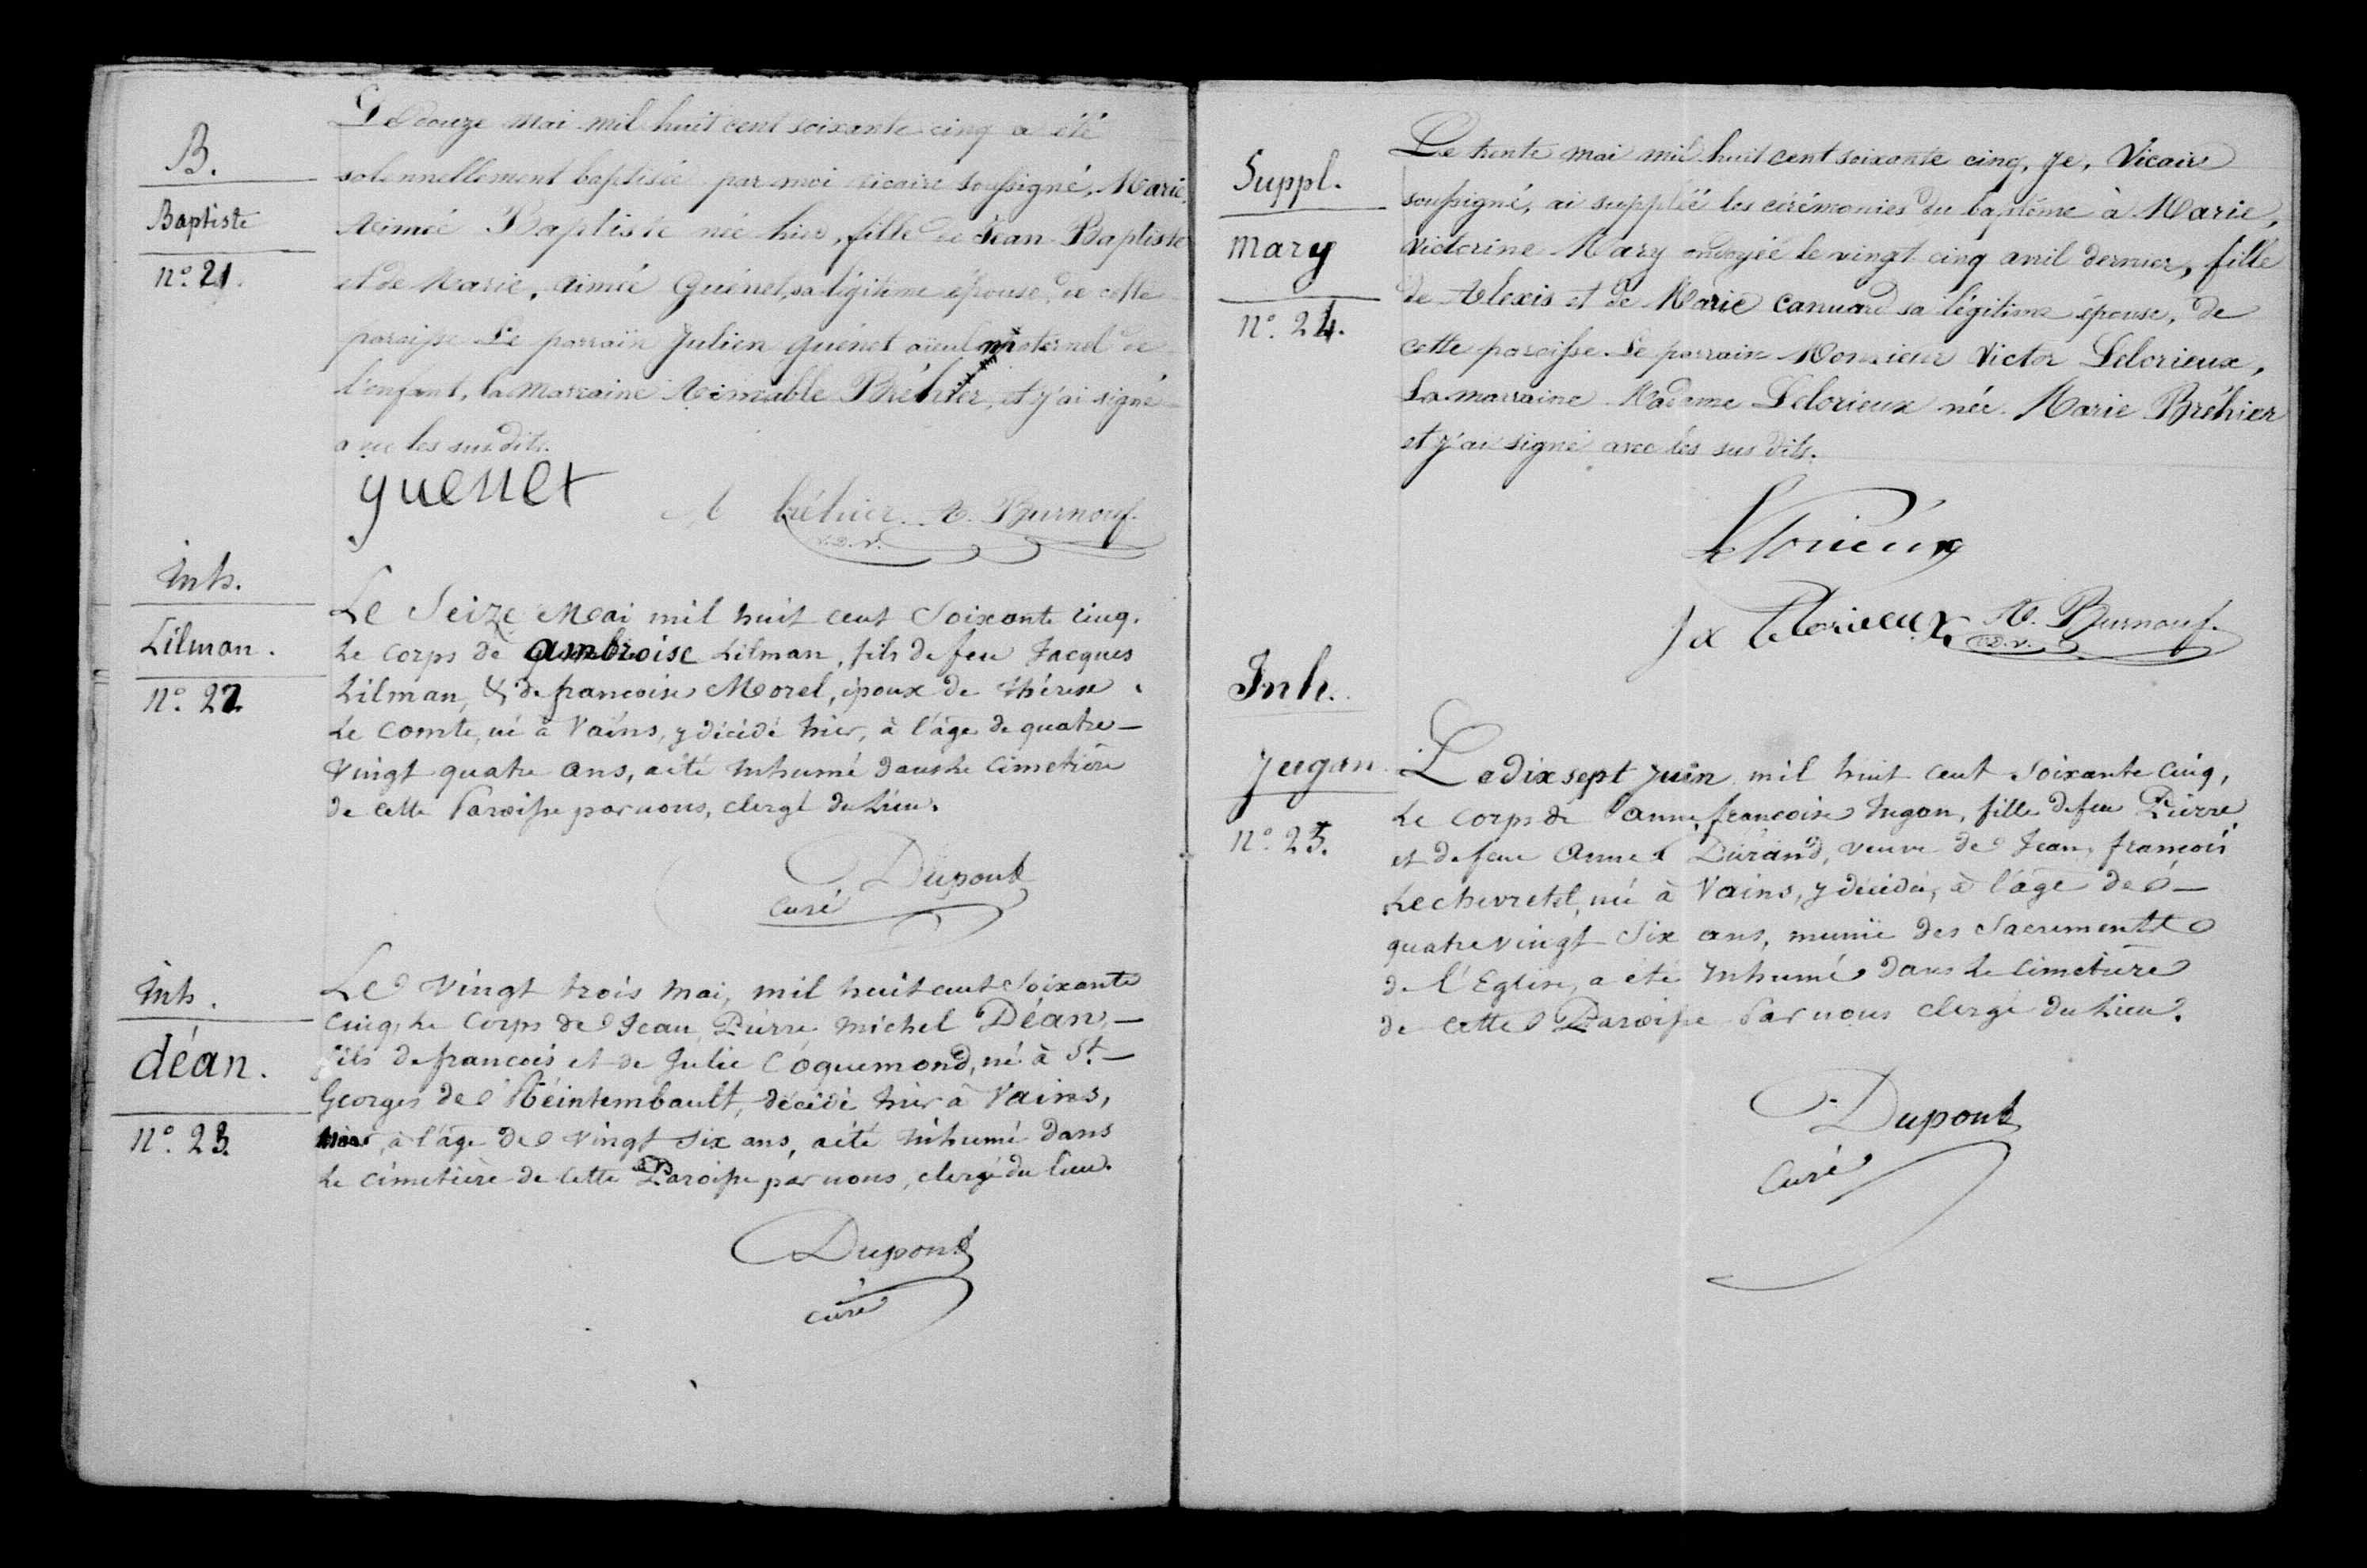 B.
Baptiste
n.º 21.
Le douze mai mil huit cent soixante cinq a été
solennellement baptisée par moi vicaire soussigné, Marie,
Aimée Baptiste née hier, fille de Jean Baptiste
et de Marie, Aimée Guénet, sa légitime épouse, de cette
paroisse. Le parrain Julien Guénet aïeul maternel de
l'enfant, la marraine Aimable Bréhier, et j'ai signé
avec les susdits.
guenet
A bréhier. A. Burnouf.
v.D.V.
Inh.
Lilman.
n.º 22
Le Seize Mai mil huit cent Soixante cinq.
Le corps de ambroise Lilman, fils de feu Jacques
Lilman, & de françoise Morel, époux de thérèse
Le Comte, né à Vains, y décédé hier, à l'âge de quatre-
Vingt quatre ans, a été inhumé dans le Cimetière
de cette Paroisse par nous, clergé du lieu.
Dupont
curé
Inh.
déan.
n.º 23.
Le Vingt trois Mai, mil huit cent Soixante
Cinq, Le Corps de Jean, Pierre Michel Déan,—
fils de francois et de Julie Coquemond, né à St.—
Georges de Réintembault, décédé hier à Vains,
à l'âge de Vingt Six ans, a été inhumé dans
Le cimetière de cette Paroisse par nous, clergé du lieu.
Dupont
curé
Suppl.
mary
n.º 24.
Le trente mai mil huit cent soixante cinq, Je, Vicaire
soussigné, ai suppléé les cérémonies du baptême à Marie,
Victorine Mary ondoyée le vingt cinq avril dernier, fille
de Alexis et de Marie Canuard sa légitime épouse, de
cette paroisse. Le parrain Monsieur Victor Lelorieux,
La marraine Madame Lelorieux née Marie Bréhier
et j'ai signé avec les sus dits.
Lelorieux
Lelorieux A. Burnouf.
v.D.V.
Inh.
Jugan.
n.º 25.
Le dix sept Juin mil huit cent Soixante Cinq,
Le Corps de anne, françoise Jugan, fille de feu Pierre
et de feue Anne Durand, veuve de Jean, françois
Lechevretel, née à Vains, y décédée, à l'âge de—
quatre vingt Six ans, munie des Sacrements
de l'Eglise, a été inhumée dans le Cimetière
de cette Paroisse Par nous clergé du lieu.
Dupont
Curé